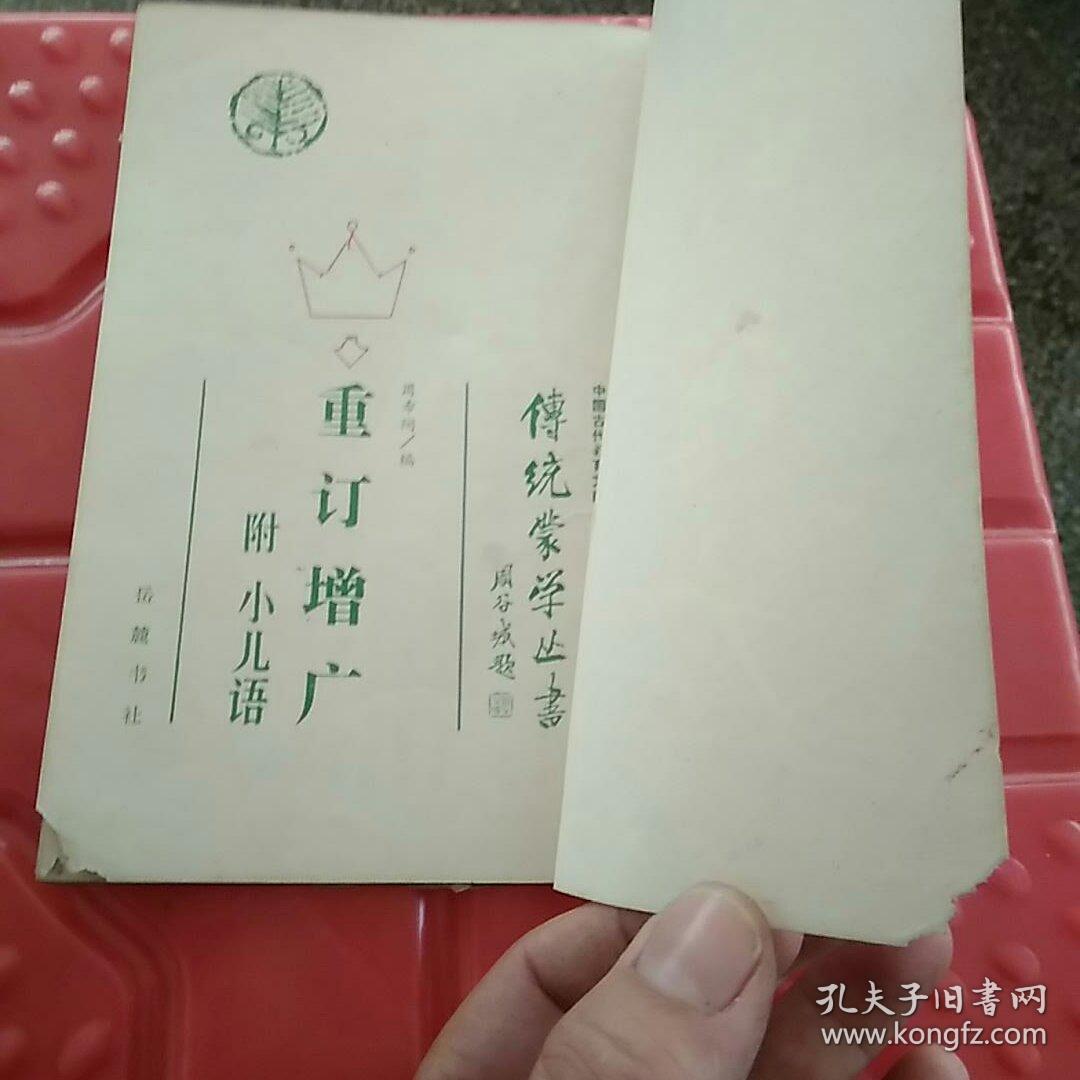 中国古代
傳統蒙学丛書
周谷城题
周希陶/编
重订增广
附 小儿语
岳麓书社
孔夫子旧書网
www.kongfz.com